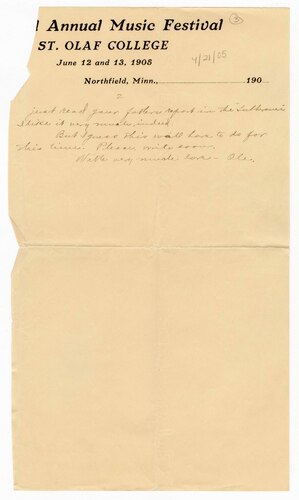 l Annual Music Festival
ST. OLAF COLLEGE
June 12 and 13, 1905
Northfield, Minn., 190
3
4/21/05
2
just read your fathers report in the Lutheraner
I like it very much indeed.
But I guess this will have to do for
this time. Please write soon.
With very much love - Ole.